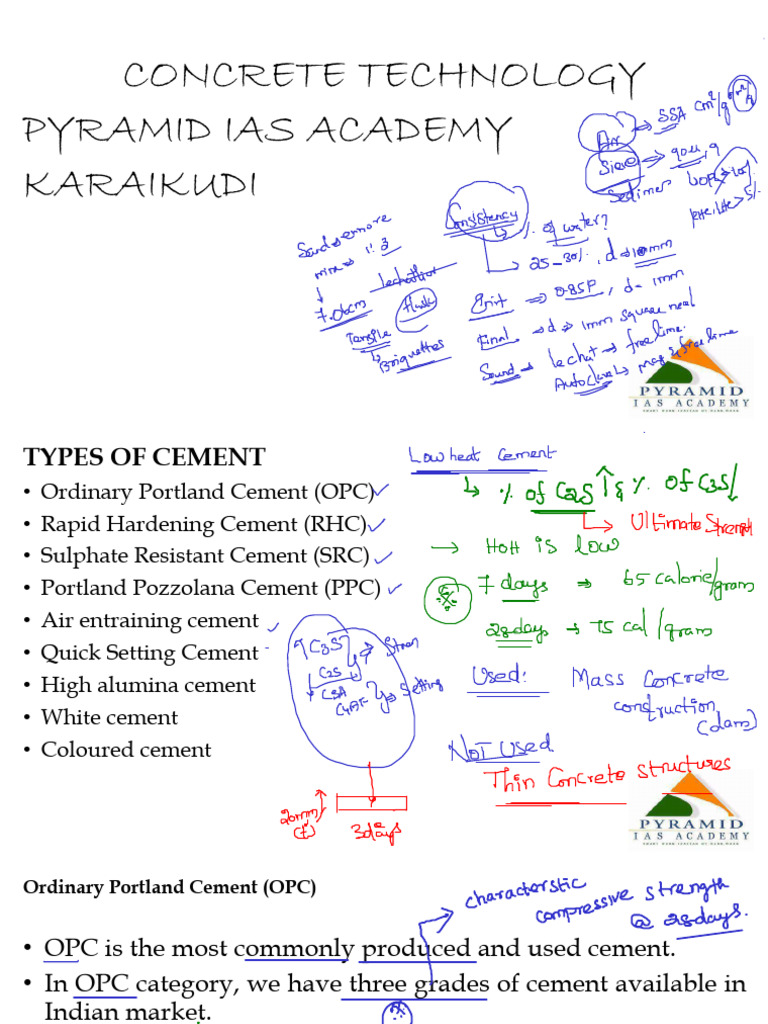 CONCRETE TECHNOLOGY
PYRAMID IAS ACADEMY
KARAIKUDI
Air → SSA cm²/g
Sieve → 90µ, 9
Consistency
% of water?
25-30%, d → 10mm
7.06cm
Tensile
Briquettes
Init ⇒ 0.85P, d- 1mm
Final → d → 1mm square needle
Sound → lechat → free lime.
Autoclave → mag & free lime
PYRAMID
IAS ACADEMY
TYPES OF CEMENT
• Ordinary Portland Cement (OPC)
• Rapid Hardening Cement (RHC)
• Sulphate Resistant Cement (SRC)
• Portland Pozzolana Cement (PPC)
• Air entraining cement
• Quick Setting Cement
• High alumina cement
• White cement
• Coloured cement
Low heat Cement
↳ % of C2S ↑ & % of C3S ↓
↳ Ultimate Strength
→ HOH is low
7 days ⇒ 65 calorie/gram
28days → 75 cal/gram
Used: Mass Concrete
construction
(dam)
NOT Used
Thin Concrete structures
C3S
C2S
C3A
C4AF
Setting
20mm
(t)
3days
PYRAMID
IAS ACADEMY
Ordinary Portland Cement (OPC)
characterstic
compressive strength
@ 28days.
• OPC is the most commonly produced and used cement.
• In OPC category, we have three grades of cement available in
Indian market.